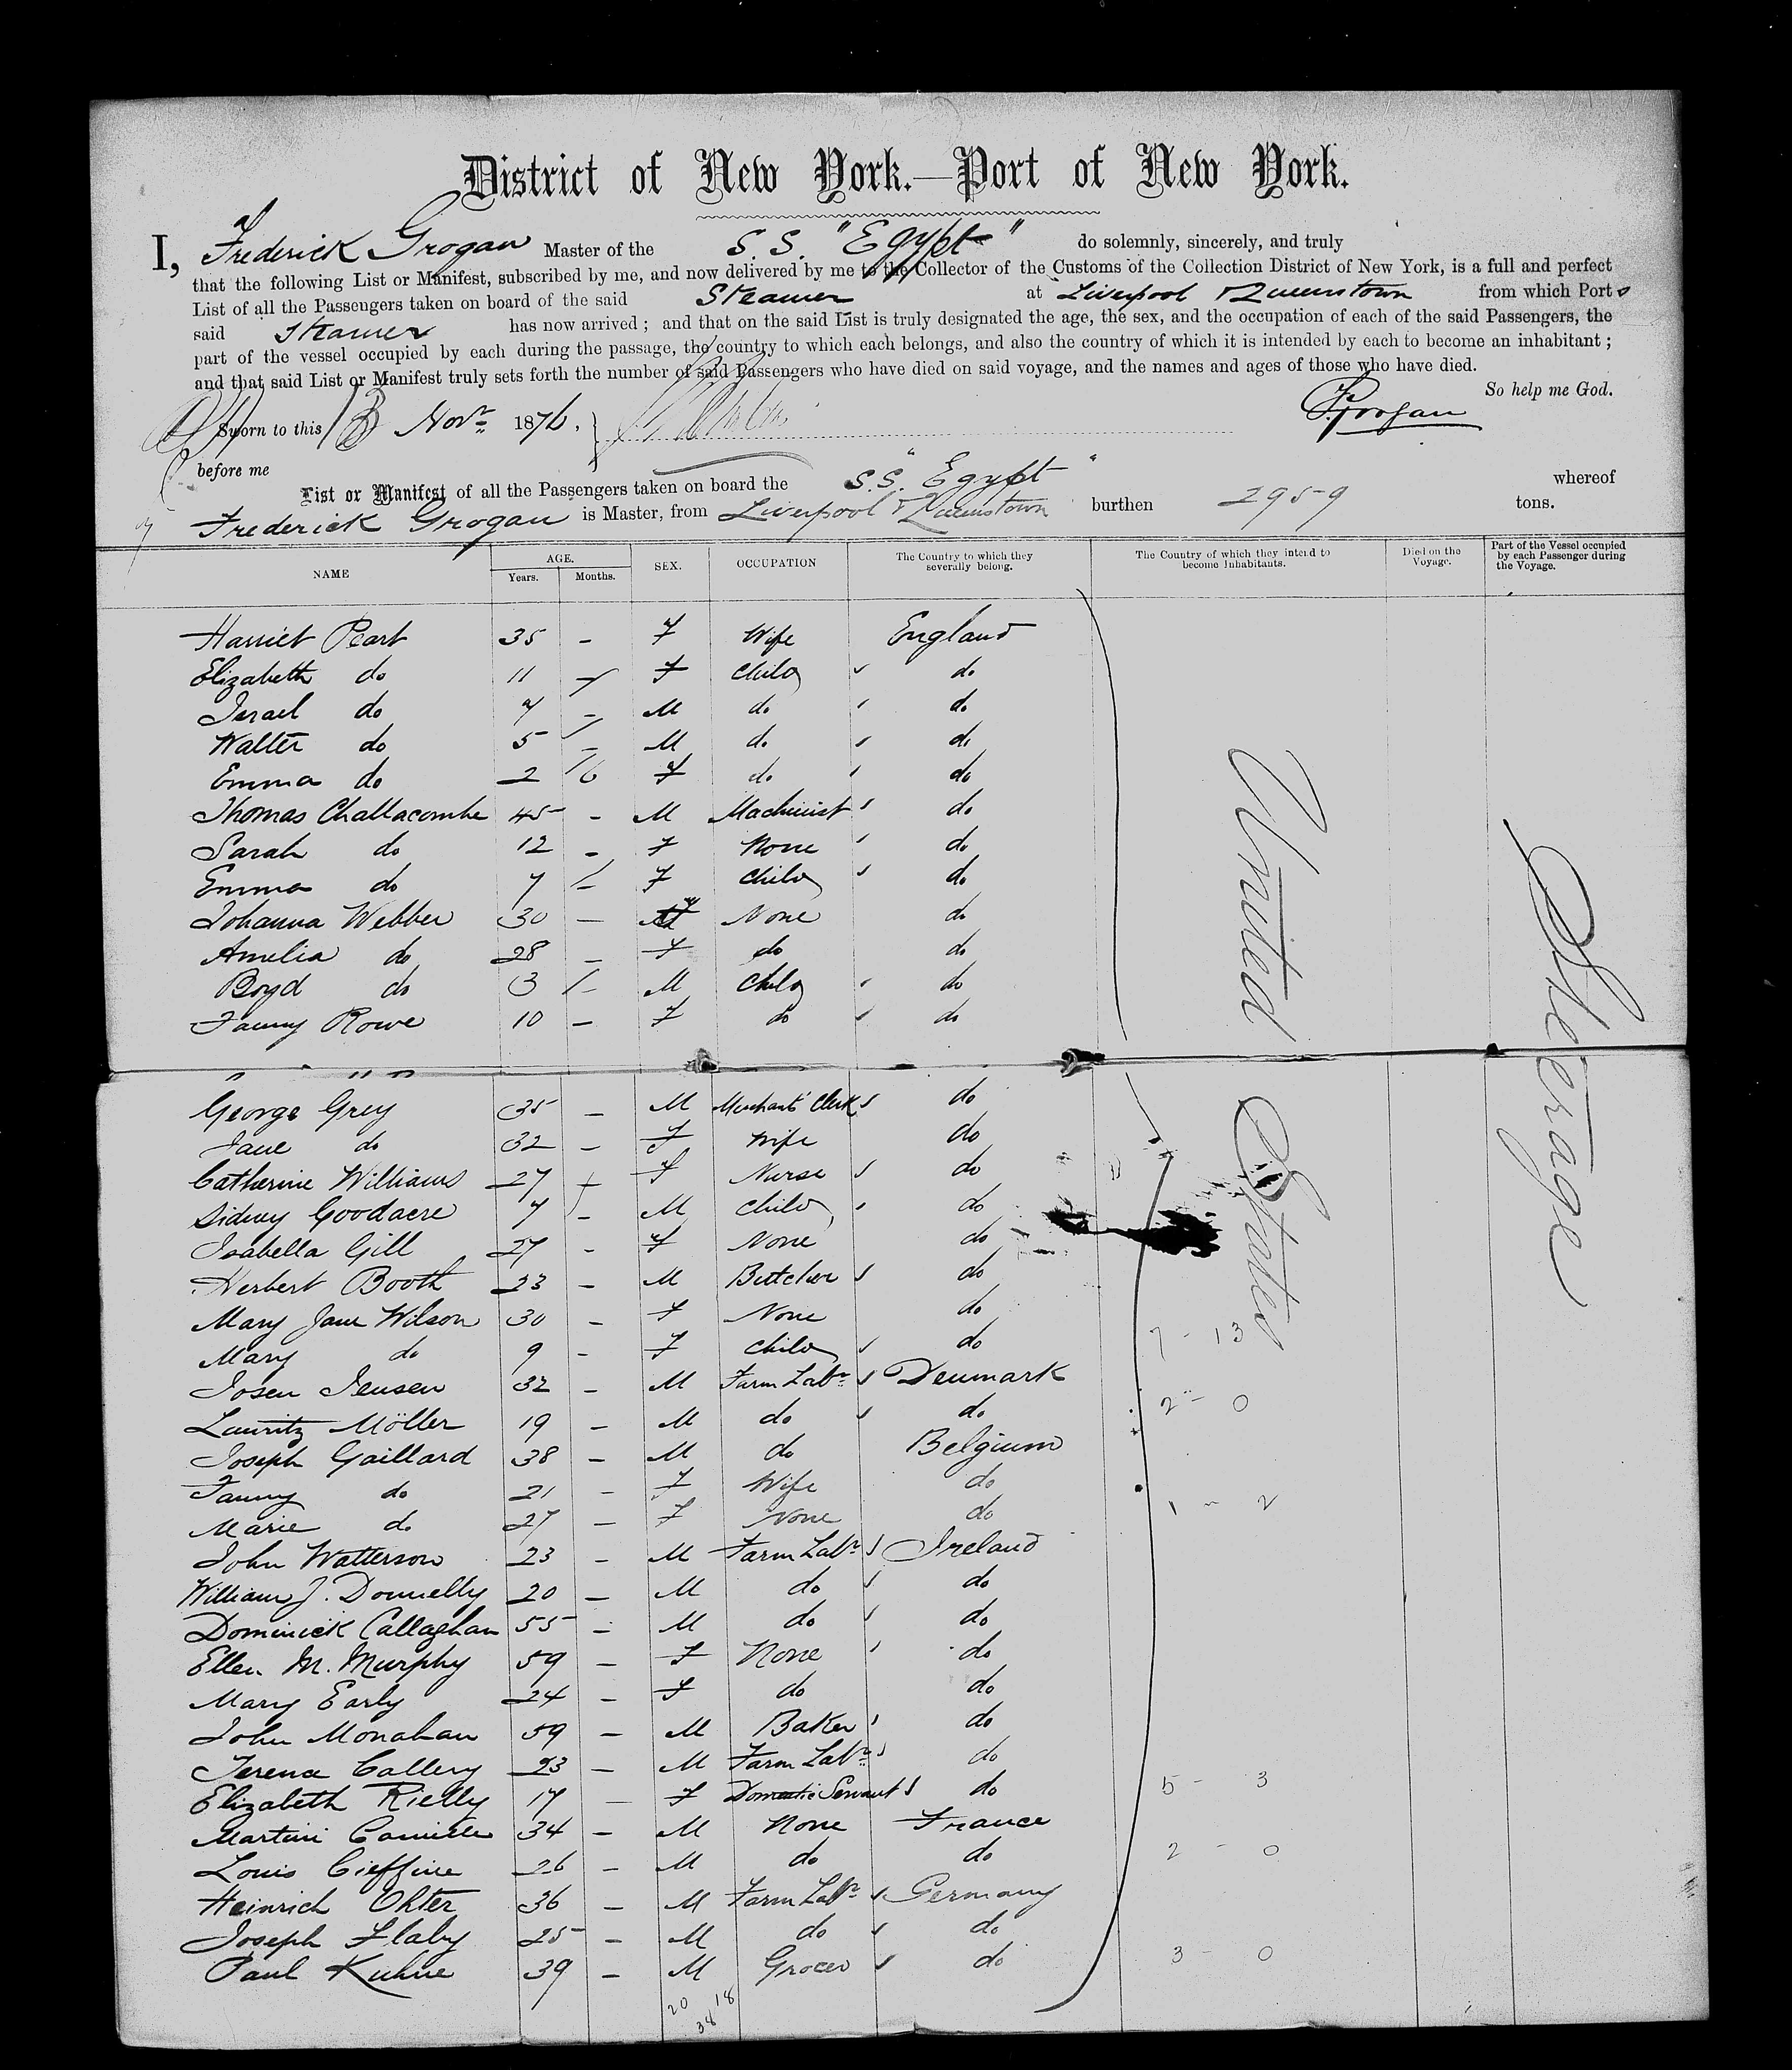 District of New York.—Port of New York.
I, Frederick Grogan Master of the S.S. "Egypt" do solemnly, sincerely, and truly
that the following List or Manifest, subscribed by me, and now delivered by me to the Collector of the Customs of the Collection District of New York, is a full and perfect
List of all the Passengers taken on board of the said Steamer at Liverpool & Queenstown from which Ports
said Steamer has now arrived; and that on the said List is truly designated the age, the sex, and the occupation of each of the said Passengers, the
part of the vessel occupied by each during the passage, the country to which each belongs, and also the country of which it is intended by each to become an inhabitant;
and that said List or Manifest truly sets forth the number of said Passengers who have died on said voyage, and the names and ages of those who have died.
So help me God.
Sworn to this 13 Novr 1876. FGrogan
before me
List or Manifest of all the Passengers taken on board the S.S. "Egypt" whereof
Frederick Grogan is Master, from Liverpool & Queenstown burthen 2959 tons.
NAME AGE. Years. Months. SEX. OCCUPATION The Country to which they severally belong. The Country of which they intend to become Inhabitants. Died on the Voyage. Part of the Vessel occupied by each Passenger during the Voyage.
Harriet Peart 35 – F Wife England
Elizabeth do 11 – F Child do
Israel do 7 – M do do
Walter do 5 – M do do
Emma do 2 6 F do do
Thomas Challacombe 45 – M Machinist do
Sarah do 12 – F None do
Emma do 7 – F Child do
Johanna Webber 30 – F None do
Amelia do 28 – F do do
Boyd do 3 – M Child do
Fanny Rowe 10 – F do do
George Grey 35 – M Merchants Clerk do
Jane do 32 – F Wife do
Catherine Williams 27 – F Nurse do
Sidney Goodacre 7 – M Child do
Isabella Gill 27 – F None do
Herbert Booth 23 – M Butcher do
Mary Jane Wilson 30 – F None do
Mary do 9 – F Child do 7 - 13
Josen Jensen 32 – M Farm Labr Denmark
Lauritz Möller 19 – M do do 2 - 0
Joseph Gaillard 38 – M do Belgium
Fanny do 21 – F Wife do
Marie do 27 – F None do 1 - 2
John Watterson 23 – M Farm Labr Ireland
William J. Donnelly 20 – M do do
Dominick Callaghan 55 – M do do
Ellen M. Murphy 59 – F None do
Mary Early 24 – F do do
John Monahan 59 – M Baker do
Terence Callery 23 – M Farm Labr do
Elizabeth Rielly 17 – F Domestic Servant do 5 - 3
Martini Camille 34 – M None France
Louis Cieffine 26 – M do do 2 - 0
Heinrich Ohter 36 – M Farm Labr Germany
Joseph Flaby 25 – M do do
Paul Kuhne 39 – M Grocer do 3 - 0
20 18
38
United States
Steerage